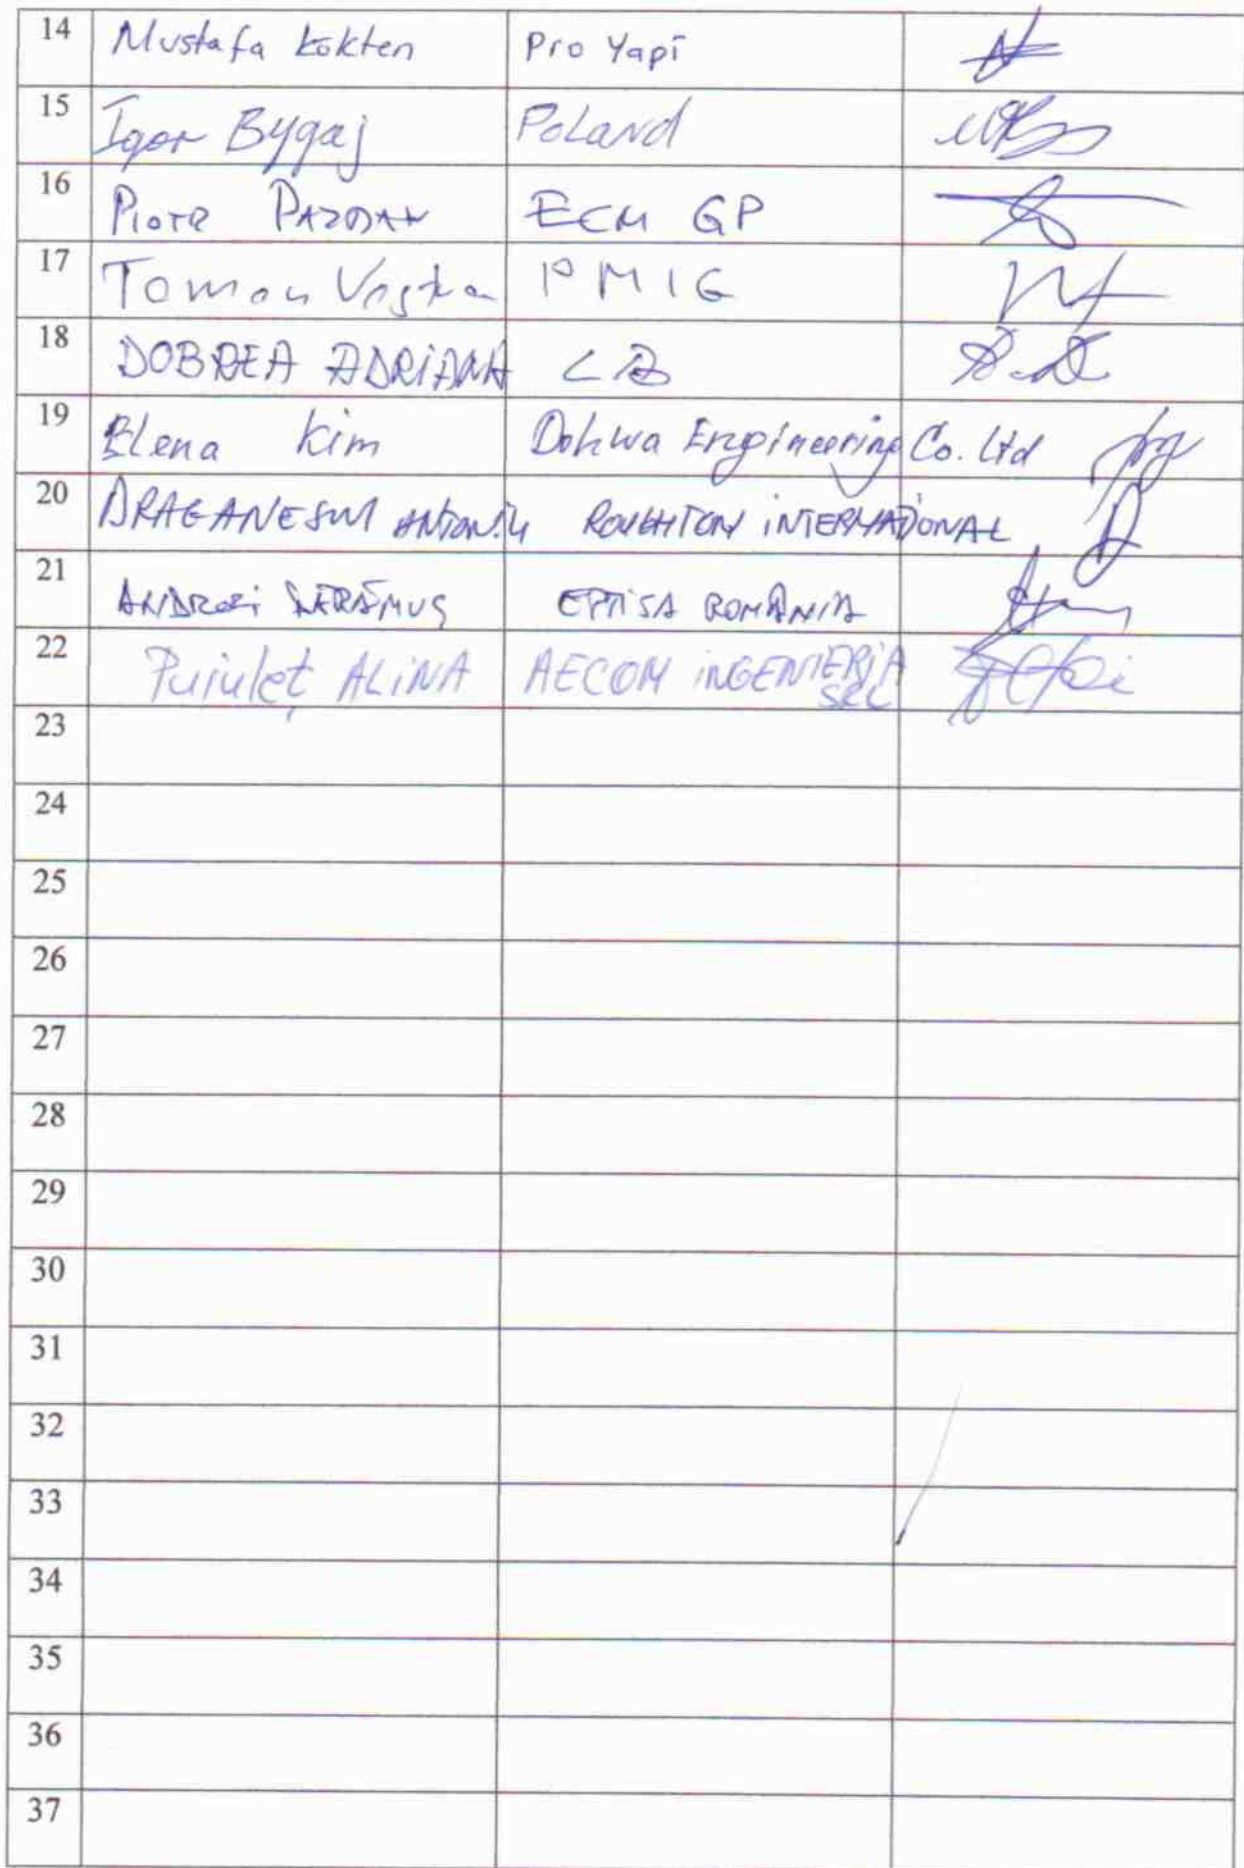 14 Mustafa Kökten Pro Yapi
15 Igor Bygaj Poland
16 Piotr PAZDAN ECM GP
17 Toman PMIG
18 DOBREA ADRIANA
19 Elena Kim Dohwa Engineering Co. Ltd
20 INTERNATIONAL
21 ANDREI EPTISA ROMÂNIA
22 Puiuleț ALINA AECOM INGENIERIA
SRL
23
24
25
26
27
28
29
30
31
32
33
34
35
36
37